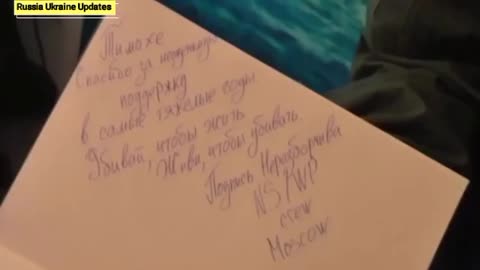 Russia Ukraine Updates
Тимохе
Спасибо за
поддержку
в самые тяжелые годы
Убивай, чтобы жить
Живи, чтобы убивать.
Подпись Неразборчива
NS/WP
crew
Moscow